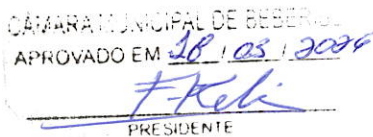 CÂMARA MUNICIPAL DE BEBERIBE
APROVADO EM 28 / 03 / 2024
PRESIDENTE